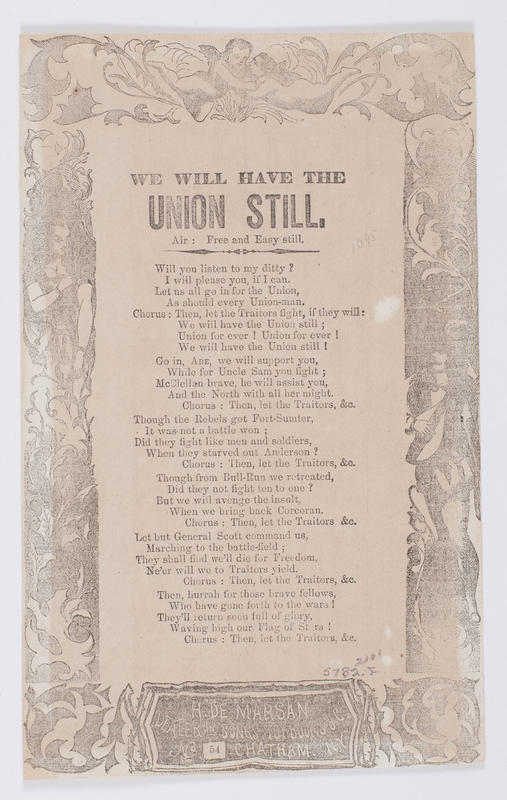 WE WILL HAVE THE
UNION STILL.
Air : Free and Easy still.
1095
Will you listen to my ditty ?
I will please you, if I can.
Let us all go in for the Union,
As should every Union-man.
Chorus : Then, let the Traitors fight, if they will:
We will have the Union still ;
Union for ever ! Union for ever !
We will have the Union still !
Go in, ABE, we will support you,
While for Uncle Sam you fight ;
McClellan brave, he will assist you,
And the North with all her might.
Chorus : Then, let the Traitors, &c.
Though the Rebels got Fort-Sumter,
It was not a battle won ;
Did they fight like men and soldiers,
When they starved out Anderson ?
Chorus : Then, let the Traitors, &c.
Though from Bull-Run we retreated,
Did they not fight ten to one ?
But we will avenge the insult,
When we bring back Corcoran.
Chorus : Then, let the Traitors &c.
Let but General Scott command us,
Marching to the battle-field ;
They shall find we'll die for Freedom,
Ne'er will we to Traitors yield.
Chorus : Then, let the Traitors, &c.
Then, hurrah for those brave fellows,
Who have gone forth to the wars !
They'll return soon full of glory,
Waving high our Flag of Stars !
Chorus : Then, let the Traitors, &c.
5782.F
H. DE MARSAN
DEALER IN SONGS, TOY BOOKS &C.
No 54 CHATHAM, N.Y.